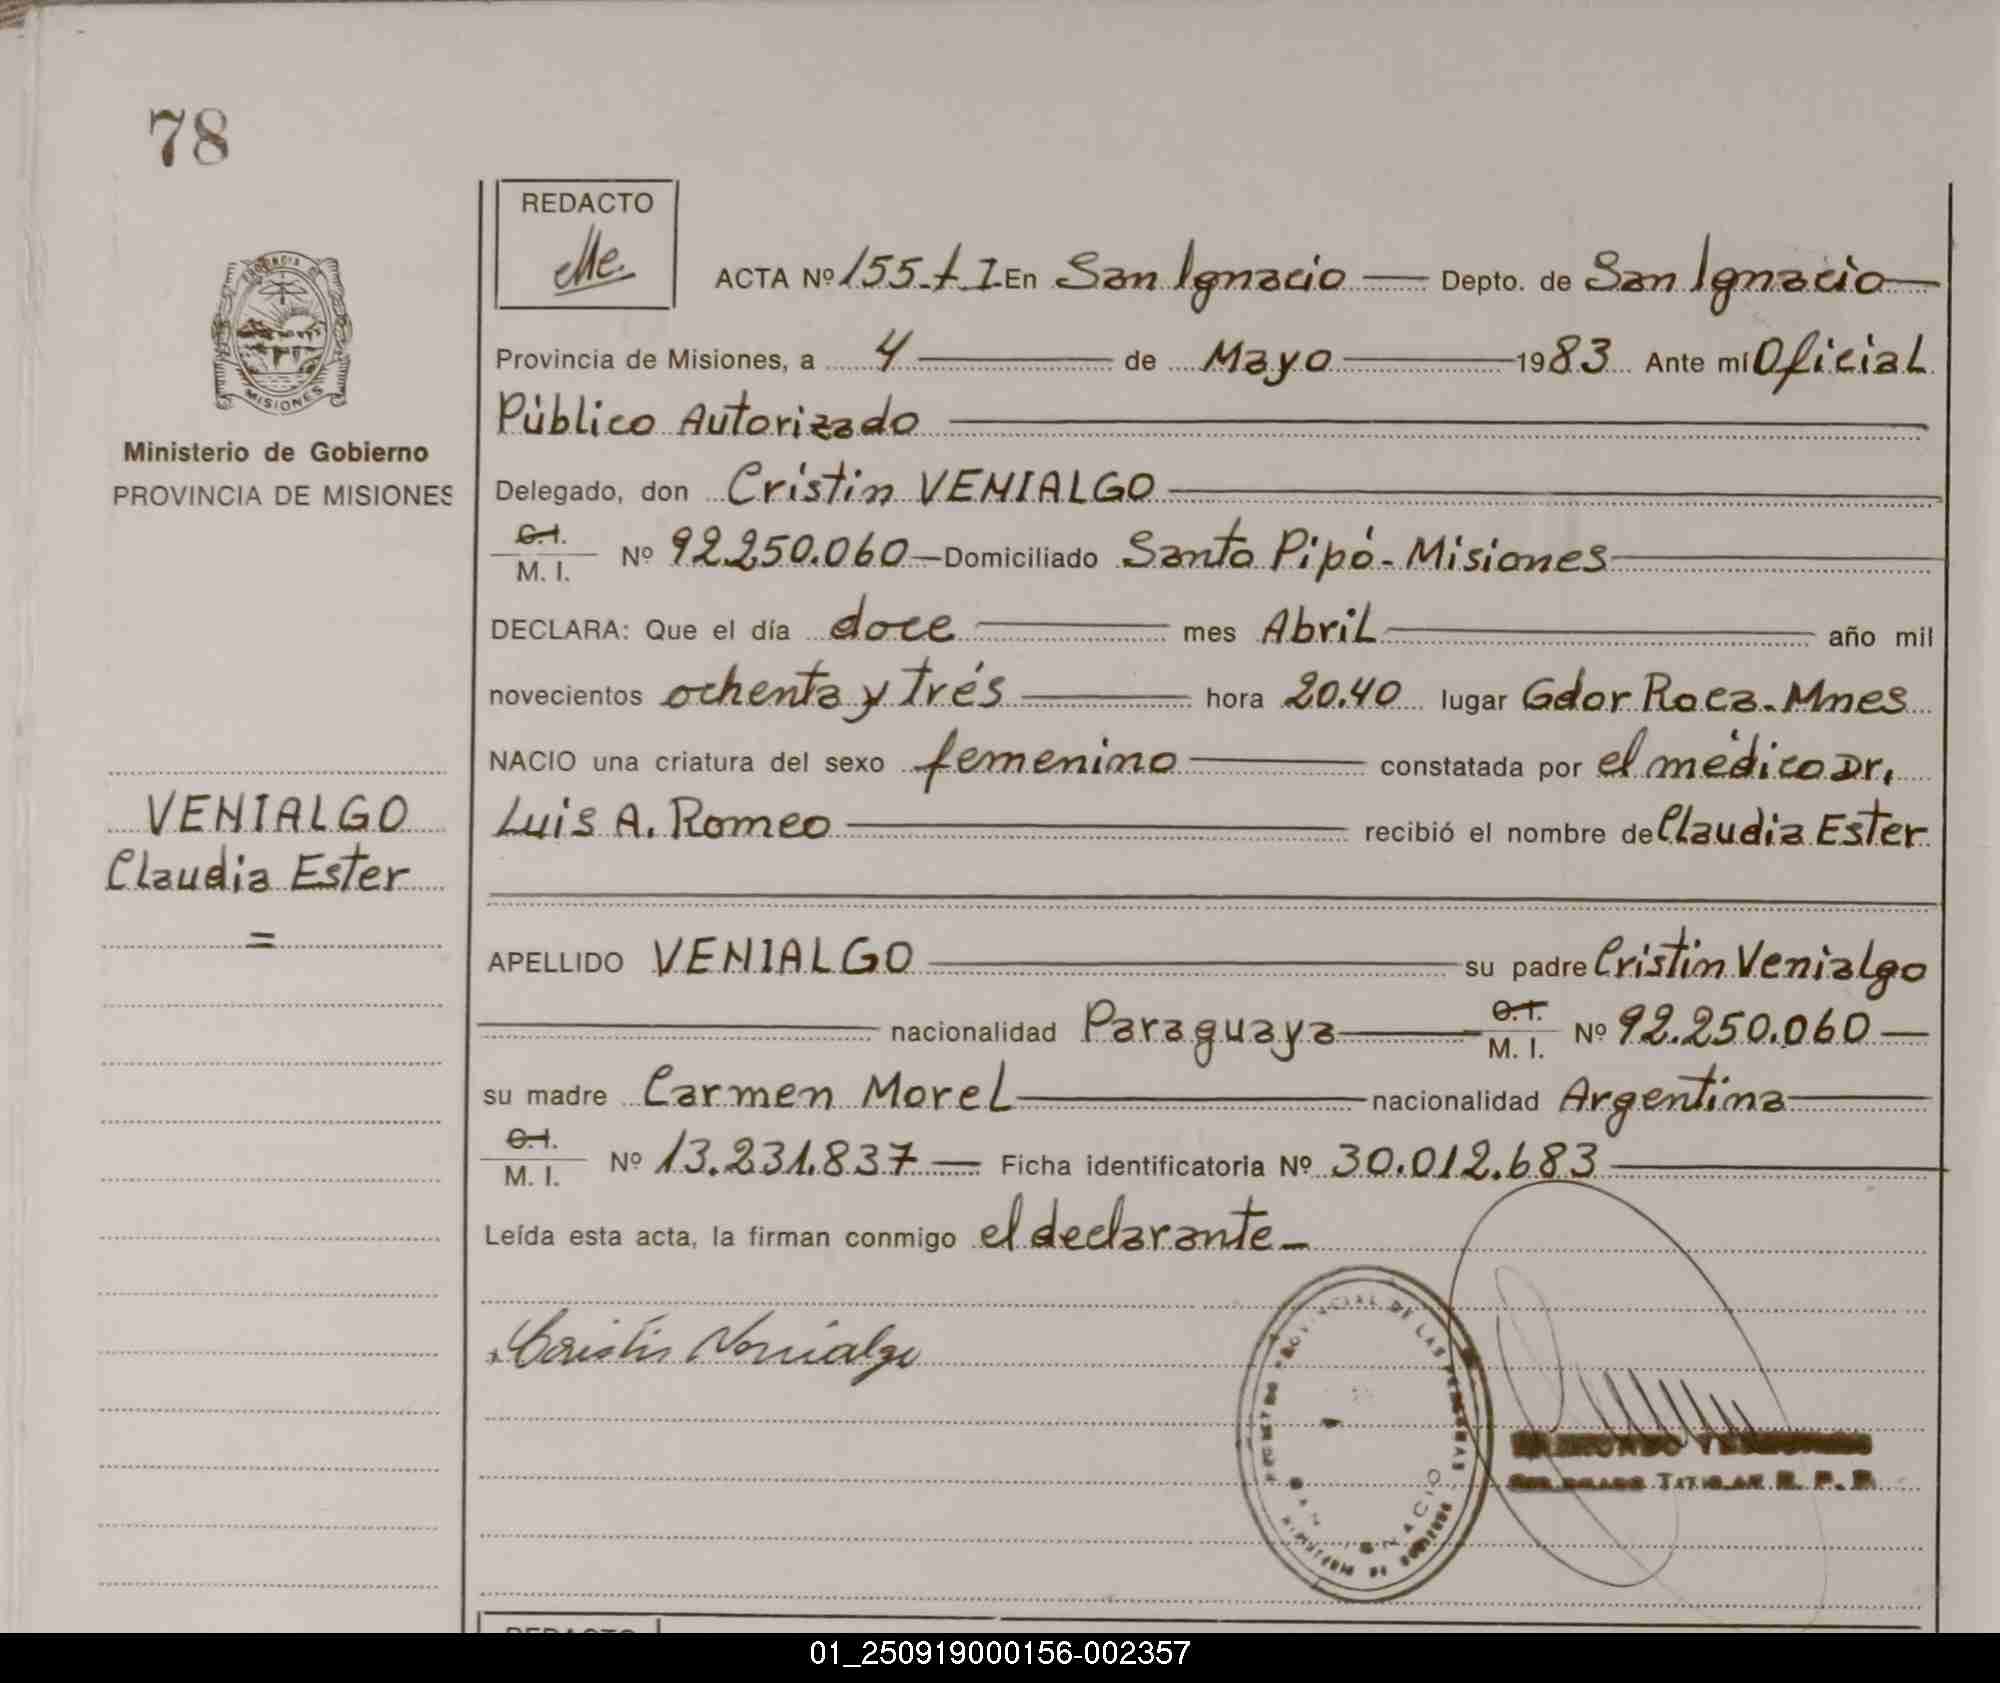 78
REDACTO
PROVINCIA DE
MISIONES
Ministerio de Gobierno
PROVINCIA DE MISIONES
VENIALGO
Claudia Ester
=
ACTA Nº 155-t I En San Ignacio Depto. de San Ignacio
Provincia de Misiones, a 4 de Mayo 1983 Ante mí Oficial
Público Autorizado
Delegado, don Cristin VENIALGO
C.I. M. I. Nº 92.250.060 Domiciliado Santo Pipó - Misiones
DECLARA: Que el día doce mes Abril año mil
novecientos ochenta y trés hora 20.40 lugar Gdor Roca - Mnes
NACIO una criatura del sexo femenino constatada por el médico Dr.
Luis A. Romeo recibió el nombre de Claudia Ester
APELLIDO VENIALGO su padre Cristin Venialgo
nacionalidad Paraguaya C.I. M. I. Nº 92.250.060
su madre Carmen Morel nacionalidad Argentina
C.I. M. I. Nº 13.231.837 Ficha identificatoria Nº 30.012.683
Leída esta acta, la firman conmigo el declarante
Cristin Venialgo
PROVINCIAL DE LAS PERSONAS
MINISTERIO DE GOBIERNO
SAN IGNACIO
TITULAR R. P. P.
REDACTO
01_250919000156-002357